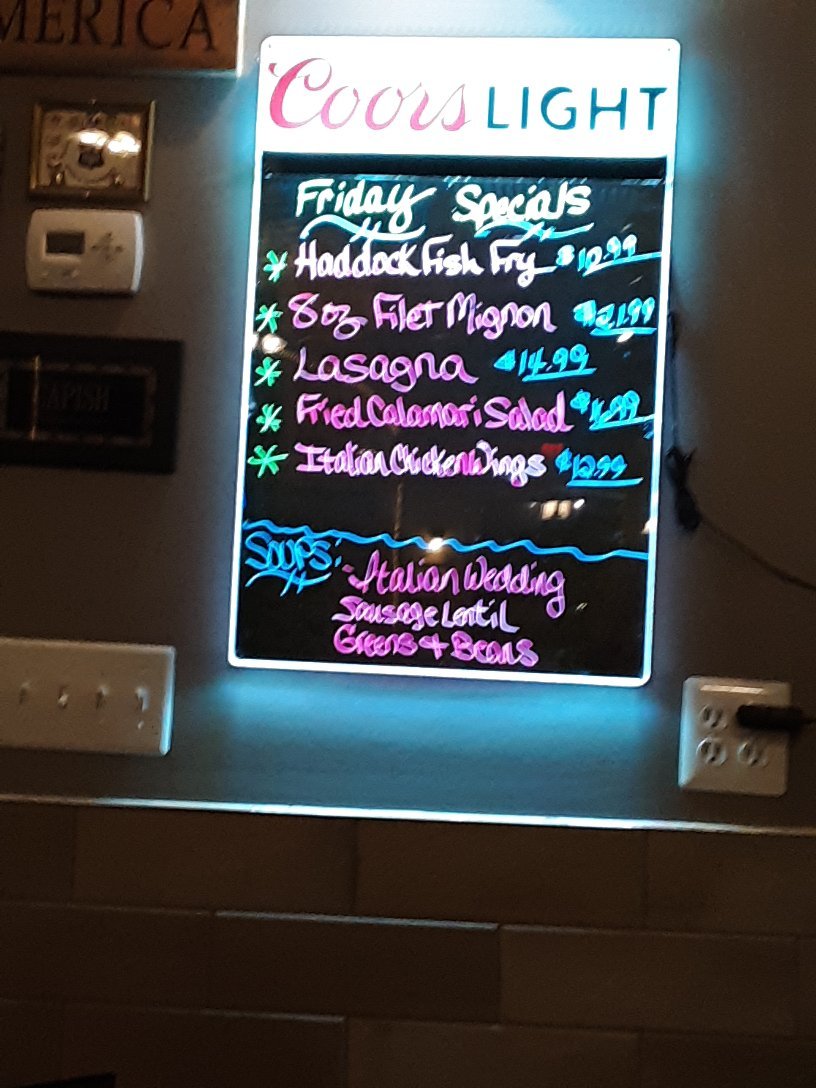 MERICA
Coors LIGHT
Friday Specials
* Haddock Fish Fry $12.99
* 8 oz Filet Mignon $21.99
* Lasagna $14.99
* Fried Calamari Salad
* Italian Chicken Wings $12.99
Soups:
- Italian Wedding
Sausage Lentil
Greens + Beans